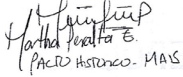 Martha Peralta E.
PACTO HISTÓRICO - MAIS